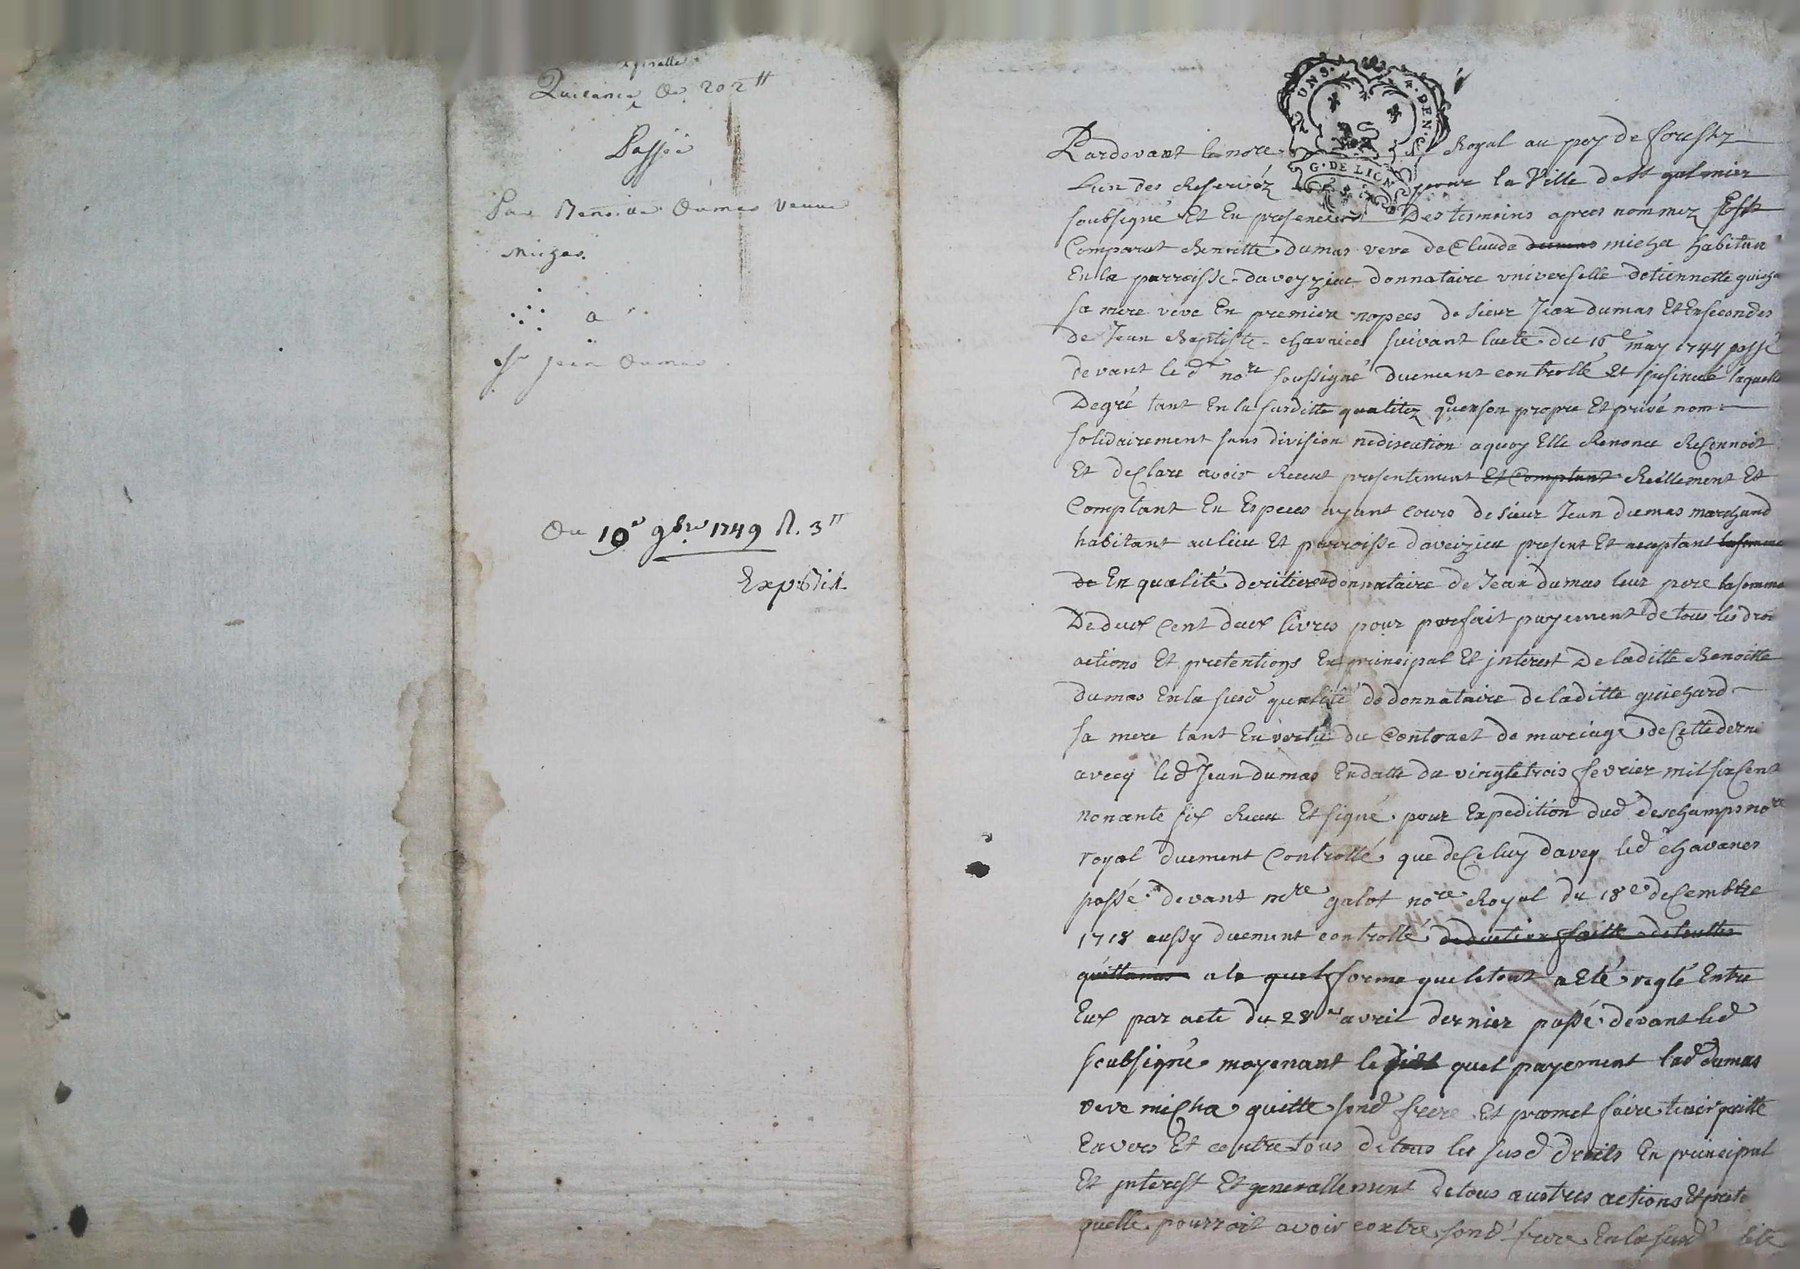 generalle
Quittance de 202 ₶
Passée
Par Benoitte dumas veuve
Micha
a
Sr jean dumas
Du 19e 9bre 1749 R. 3 ₶
Expédié
DEUX SOLS 4. DEN.
G. DE LION
Pardevant le nore Royal au pay de forestz
Lun des Reservéz pour la Ville de St galmier
soubsigné Et En presence Des temoins apres nommez fust
Comparut Benoitte dumas veve de Claude dumas micha habitan
En la parroisse davoyzieu donnataire vniverselle detiennette guicha
sa mere veve En premier nopces de sieur Jean dumas Et En secondes
de Jean Baptiste chavanes suivant lacte du 16e may 1744 passé
devant le dt nore soussigné duement controllé Et jnsinué laquelle
Degré tant En la susditte qualitéz quenson propre Et privé nom
solidairement sans division nediscution aquoy Elle Renonce ReConnoit
Et deClare avoir Receut presentement Et Comptant Réellement Et
Comptant En Especes ayant cours de sieur Jean dumas marchand
habitant au lieu Et parroisse daveizieu present Et acceptant la somme
de En qualité deritier donnataire de Jean dumas leur pere la somme
De deux Cent deux livres pour parfait payement de tous les droi
actions Et pretentions En principal Et jnterest De laditte Benoitte
dumas En la susd qualité de donnataire de laditte guichard
sa mere tant En vertu du Contract de mariage de Cette derni
avecq led Jean dumas En datte du vingtetrois fevrier mil six Cent
nonante six Receu Et signé pour Expedition dud deschamps nore
royal duement Controllé que deCeluy davecq led chavanes
passé devant mre galot nore Royal du 18e deCembre
1718 aussy duement controllé deduction faitte detouttes
quittances a la quelle forme que le tout a Eté reglé Entre
Eux par acte du 28e avril dernier passé devant led
soubsigné moyenant le quel payement lad dumas
veve miCha quitte sond frere Et promet faire tenir quitte
Envers Et contre tous de tous les susd droits En principal
Et jnterest Et generallement de tous austres actions Et prete
quelle pourroit avoir contre sond frere En la susd